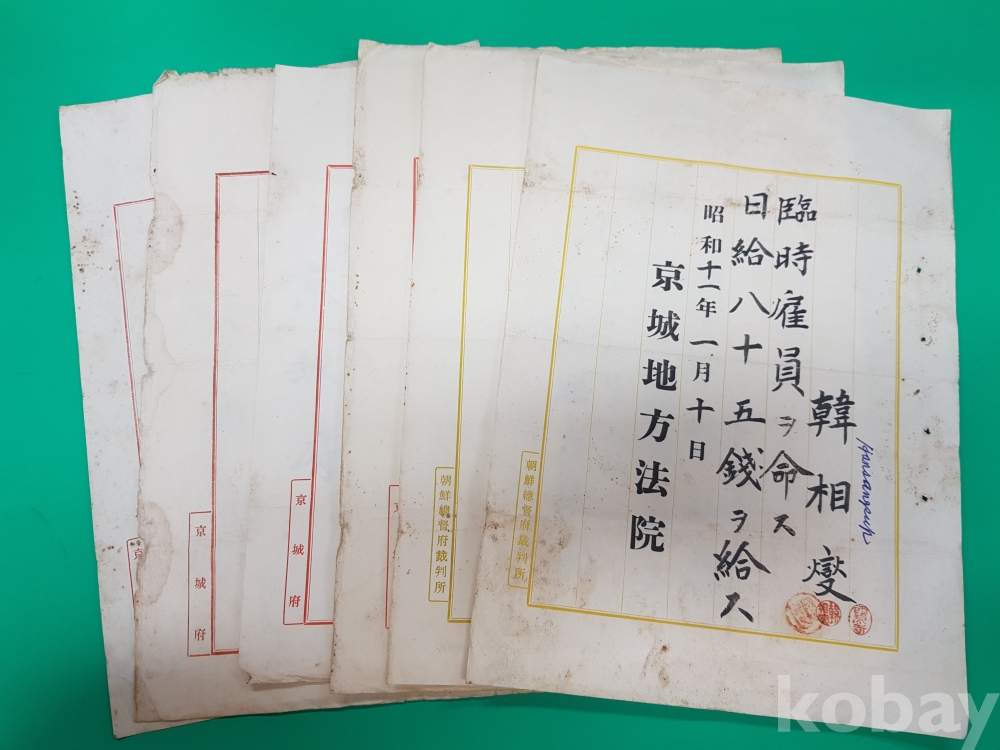 韓相燮
臨時雇員ヲ命ス
日給八十五錢ヲ給ス
昭和十一年一月十日
京城地方法院
朝鮮總督府裁判所
朝鮮總督府裁判所
京
京城府
京城府
京
kobay